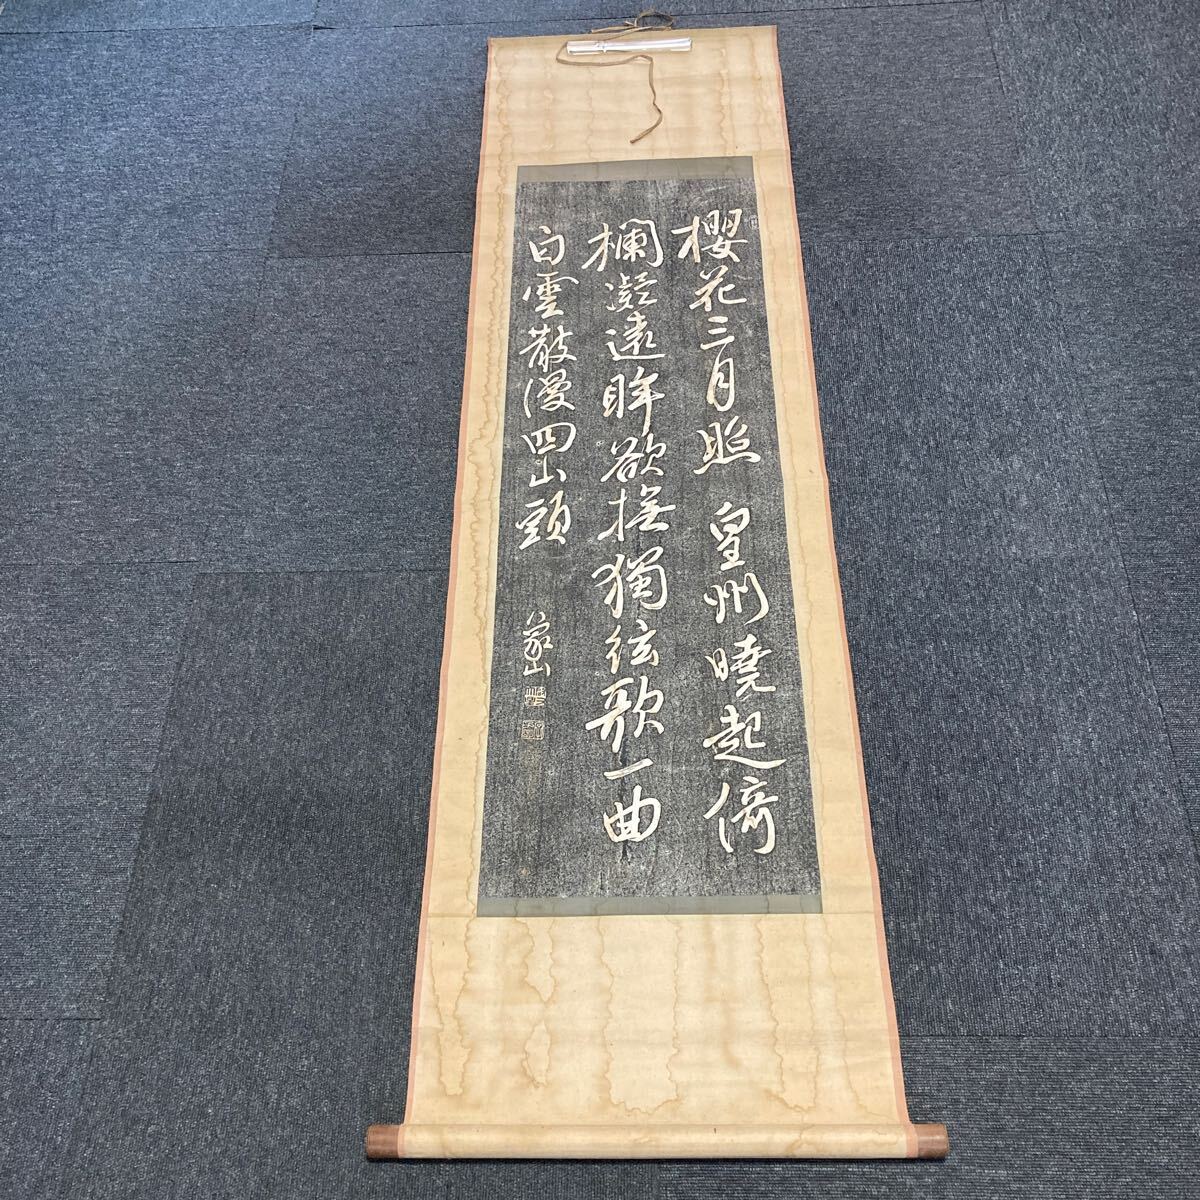 櫻花三月照 皇州曉起倚
欄凝遠眸欲撫獨弦歌一曲
白雲散漫四山頭
蒙山